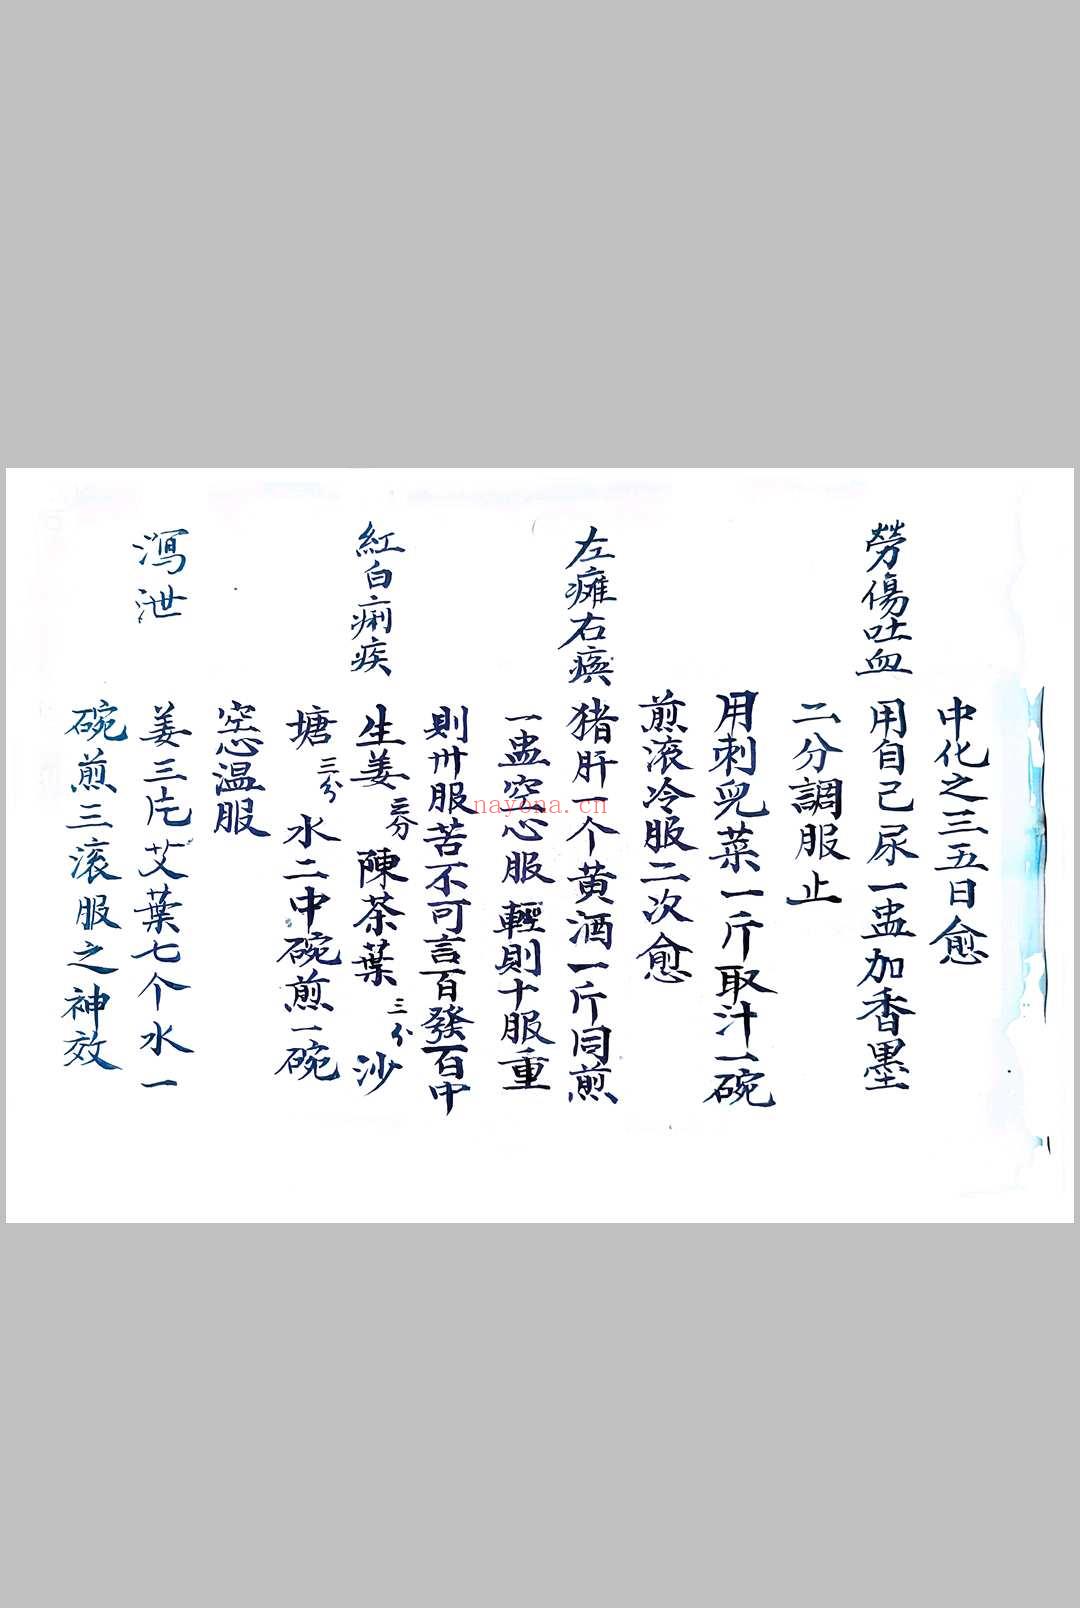 中化之三五日愈
勞傷吐血
用自己尿一盅加香墨
二分調服止
用刺兒菜一斤取汁一碗
煎滚冷服二次愈
左癱右瘓
猪肝一个黄酒一斤同煎
一盅空心服輕則十服重
則卅服苦不可言百發百中
紅白痢疾
生姜三分陳茶葉三分沙
塘三分水二中碗煎一碗
空心温服
瀉泄
姜三片艾葉七个水一
碗煎三滚服之神效
nayona.cn